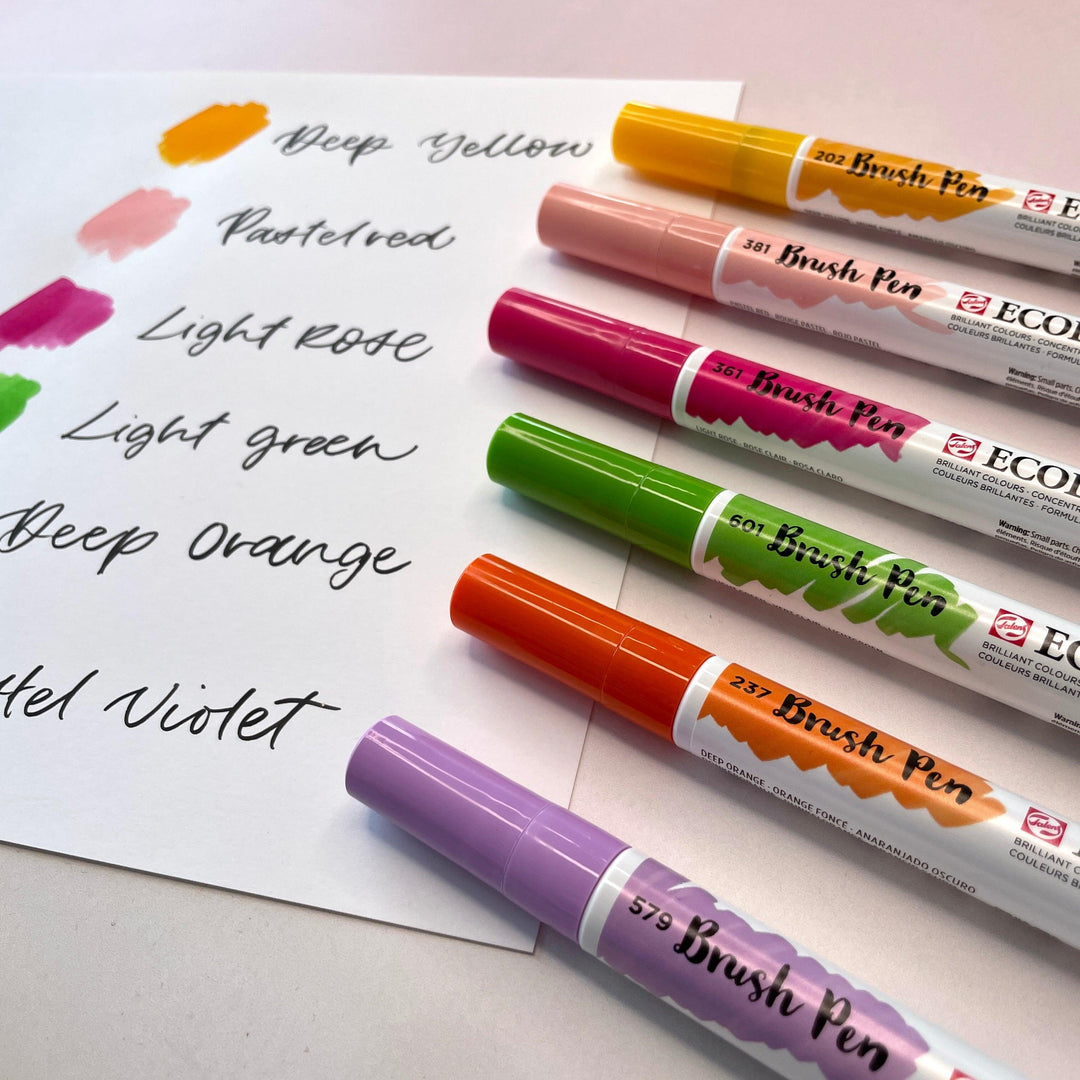 Deep Yellow
Pastel red
Light Rose
Light green
Deep Orange
Violet
202 Brush Pen
Talens
BRILLIANT
COULEURS BRILLANTES
381 Brush Pen
PASTEL RED · ROUGE PASTEL · ROJO PASTEL
Talens
BRILLIANT COLOURS ·
COULEURS BRILLANTES ·
Warning: Small parts.
361 Brush Pen
LIGHT ROSE · ROSE CLAIR · ROSA CLARO
Talens
BRILLIANT COLOURS ·
COULEURS BRILLANTES ·
Warning: Small parts.
éléments. Risque
601 Brush Pen
Talens
BRILLIANT COLOURS
COULEURS
237 Brush Pen
DEEP ORANGE · ORANGE FONCÉ · ANARANJADO OSCURO
Talens
BRILLIANT
COULEURS
579 Brush Pen